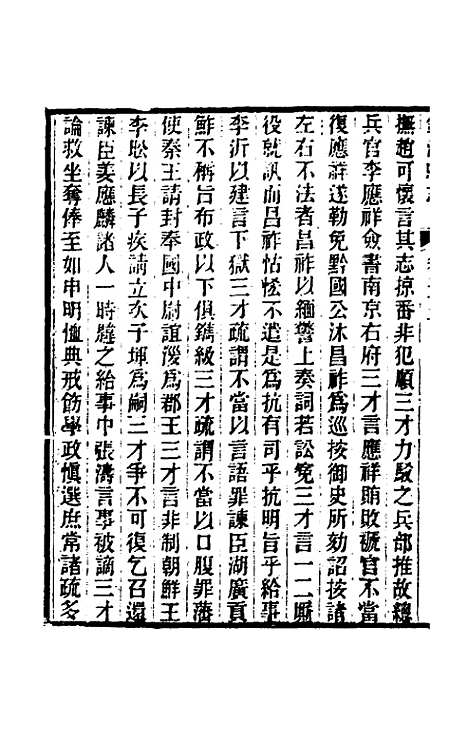 撫趙可懷言其志掠番非犯順三才力駁之兵部推故總
兵官李應祥僉書南京右府三才言應祥賄敗褫官不當
復應祥遂勒免黔國公沐昌祚為巡按御史所劾詔按諸
左右不法者昌祚以緬警上奏詞若訟冤三才言一二厮
役就訊而昌祚怙怪不遣是為抗有司乎抗明旨乎給事
李沂以建言下獄三才疏謂不當以言語罪諫臣湖廣貢
鮓不稱旨布政以下俱鐫級三才疏謂不當以口腹罪藩
使秦王請封奉國中尉誼漫為郡王三才言非制朝鮮王
李昖以長子疾請立次子琿為嗣三才爭不可復乞召還
諫臣姜應麟諸人一時韙之給事中張濤言事被謫三才
論救坐奪俸至如申明恤典戒飭學政慎選庶常諸疏多